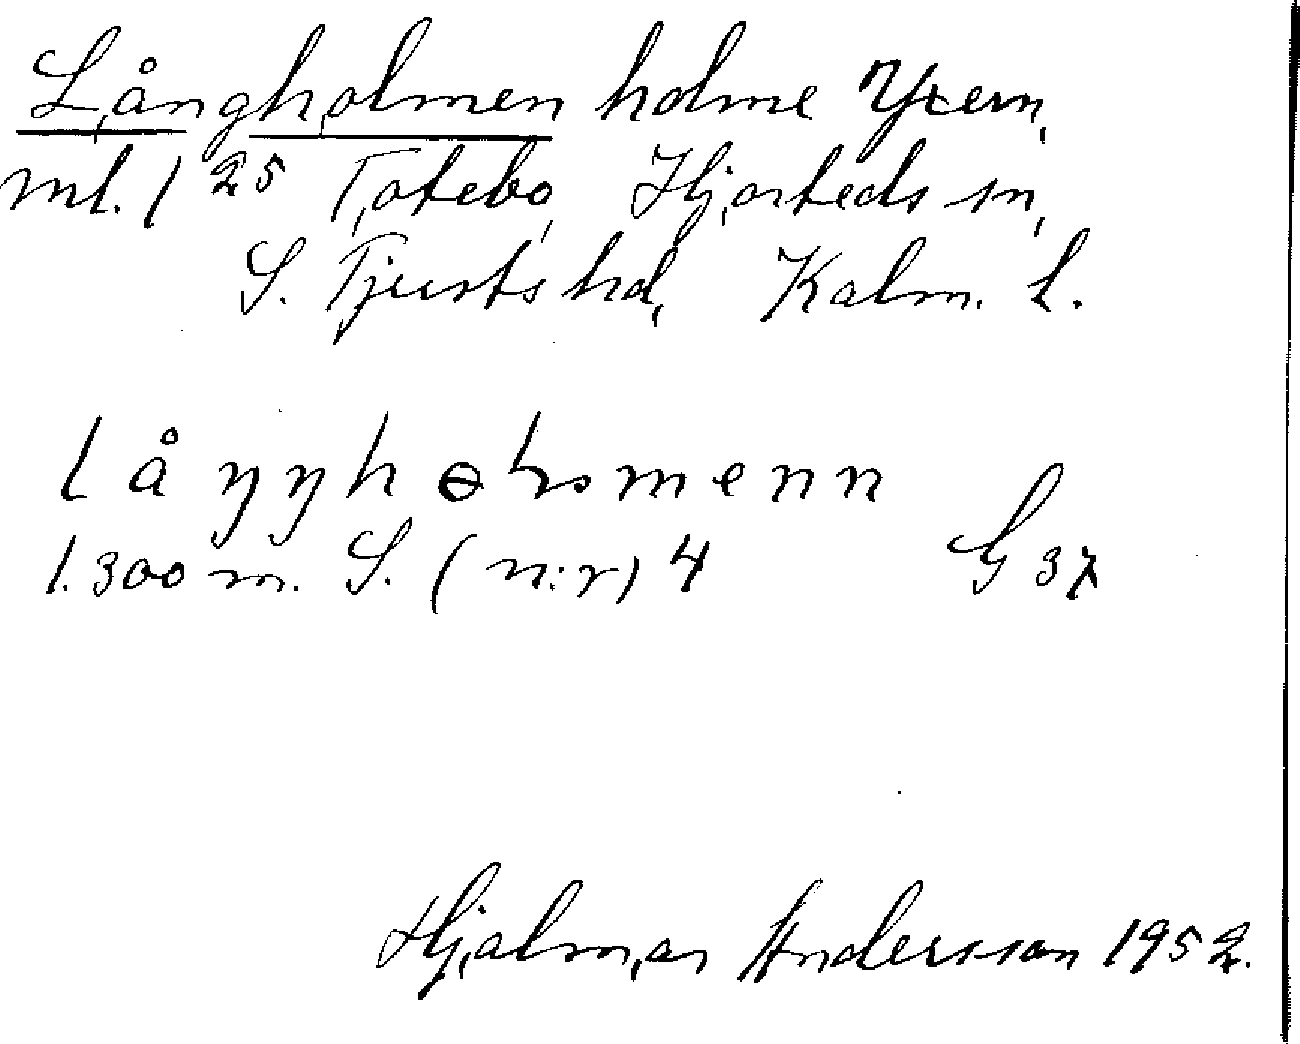 Långholmen holme Yxern,
ml. 1 25 Totebo, Hjorteds sn,
S. Tjusts hd, Kalm. l.
l å ŋ ŋ h ɵ l s m e n n
1.300 m. S. (n:r) 4 G 37
Hjalmar Andersson 1952.